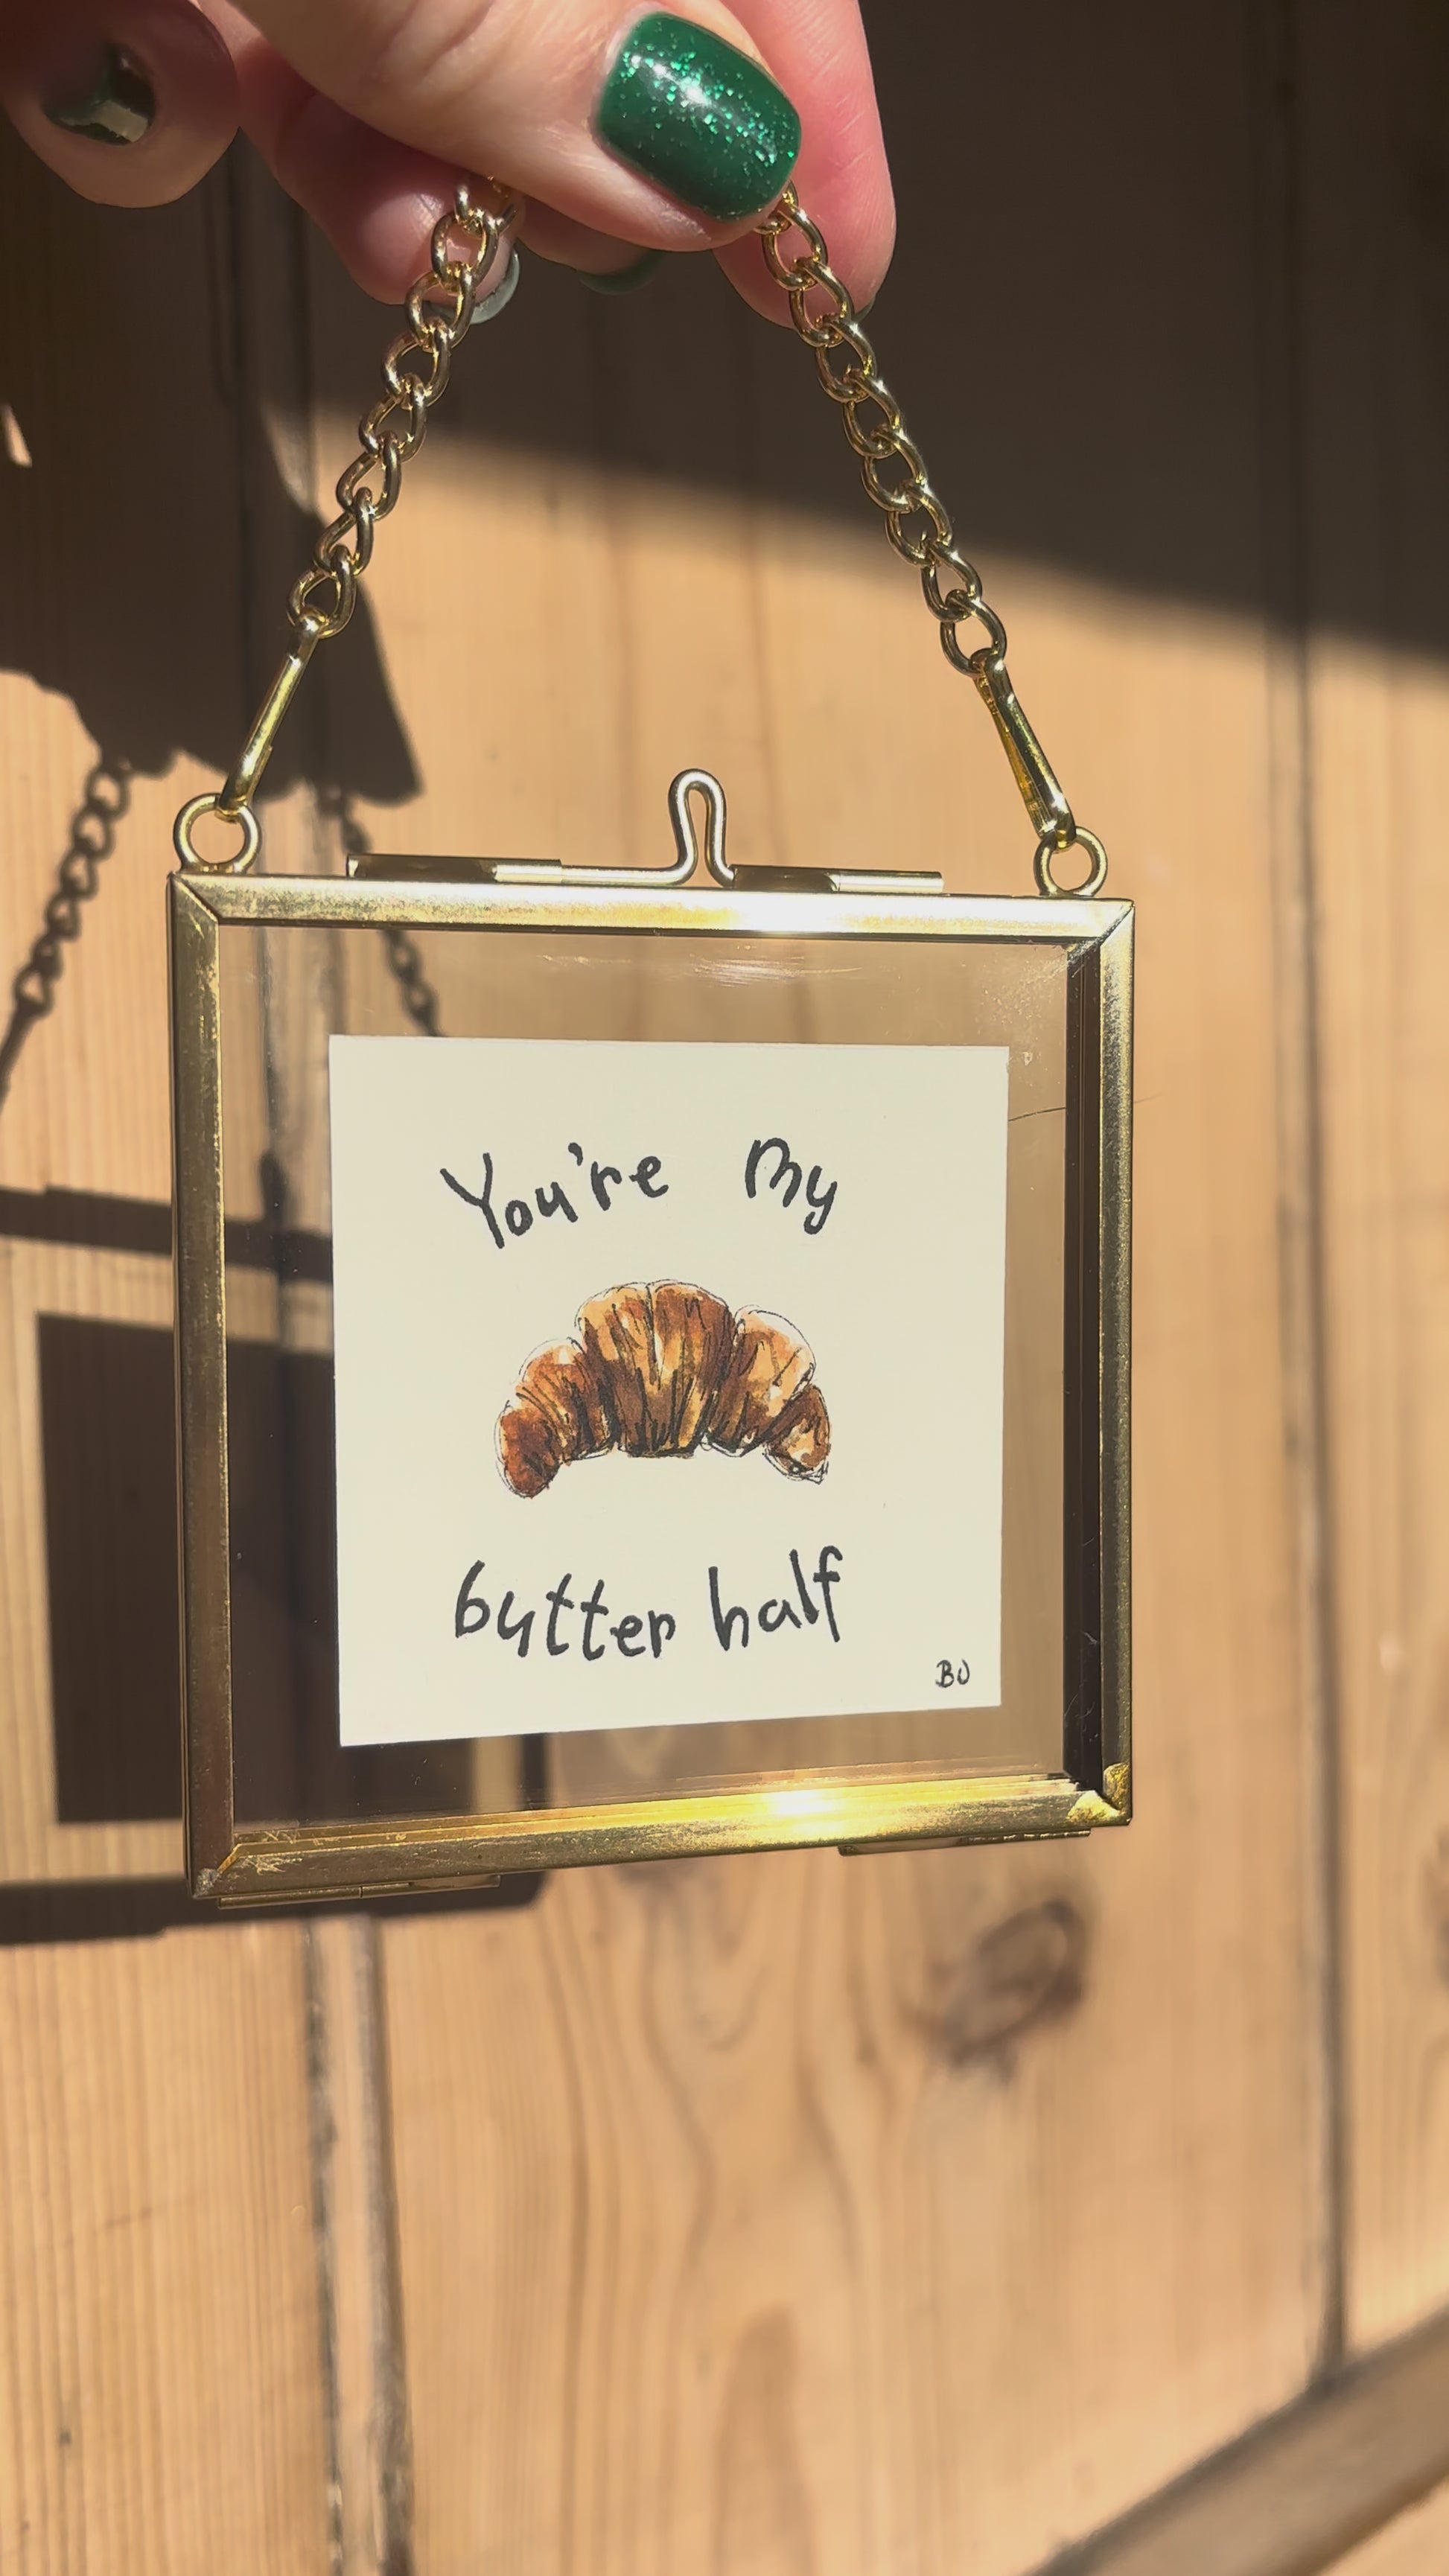 You're my
butter half
BO